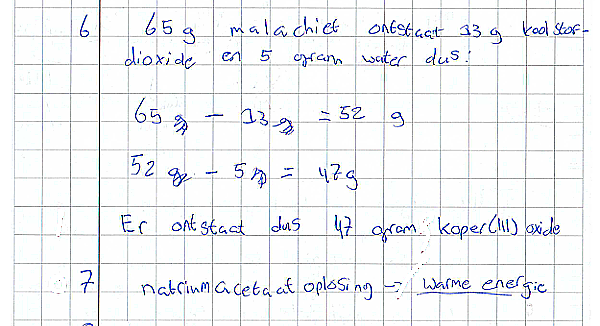 6 65 g malachiet ontstaat 13 g koolstof-
dioxide en 5 gram water dus:
65 g - 13 g = 52 g
52 g - 5 g = 47g
Er ontstaat dus 47 gram koper(III) oxide
7 natriumacetaat oplosing → warme energie